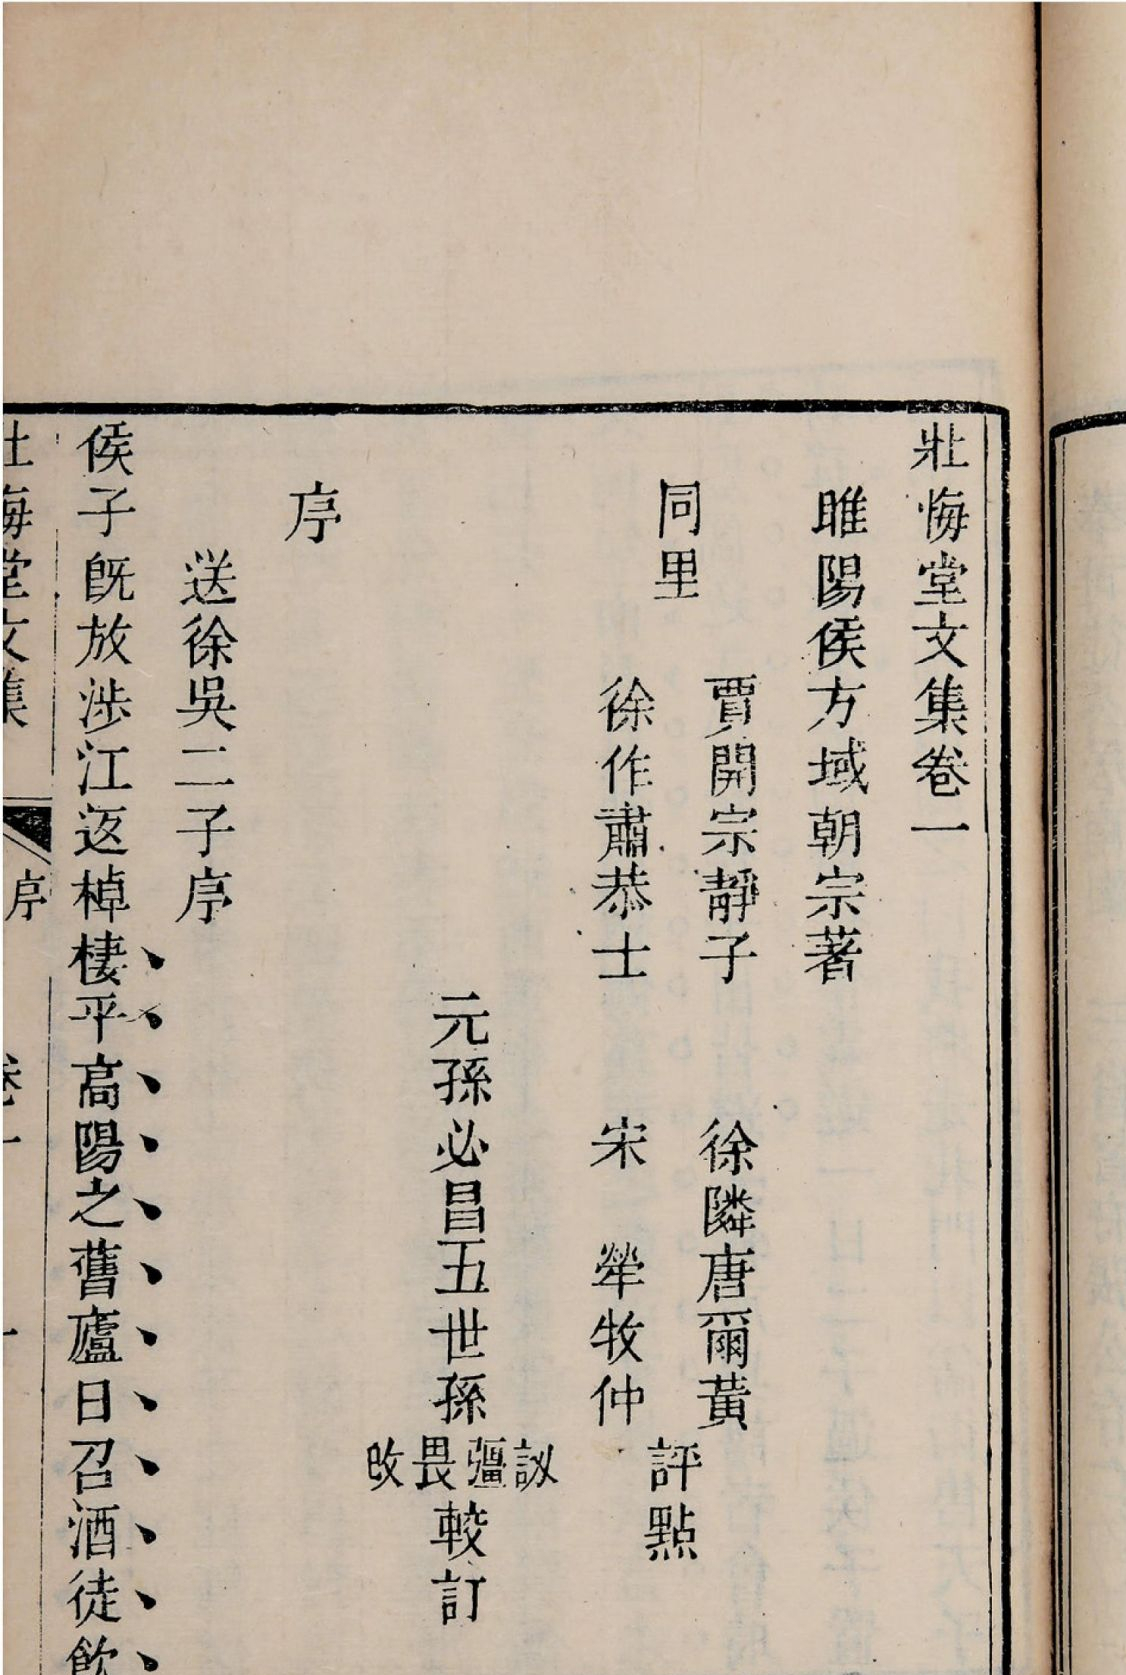 壯悔堂文集卷一
睢陽侯方域朝宗著
賈開宗靜子 徐隣唐爾黃
同里 評點
徐作肅恭士 宋犖牧仲
元孫必昌五世孫彊畏較訂
序
送徐吳二子序
侯子既放涉江返棹棲平高陽之舊廬日召酒徒飲
壯悔堂文集 序 卷一 一